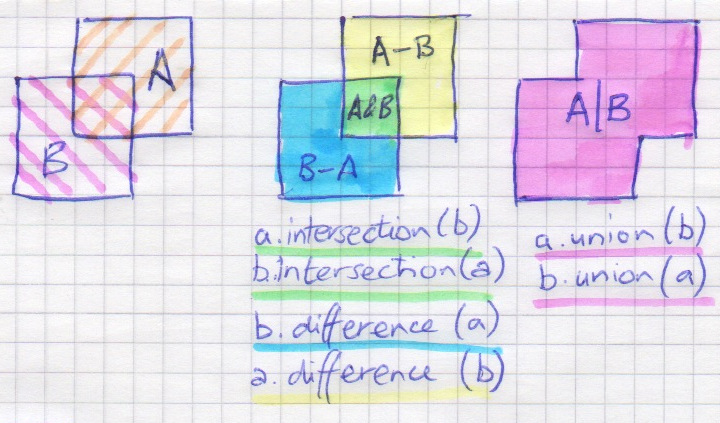 A
B
A-B
A&B
B-A
A|B
a.intersection(b)
b.intersection(a)
b.difference (a)
a.difference (b)
a.union(b)
b.union(a)